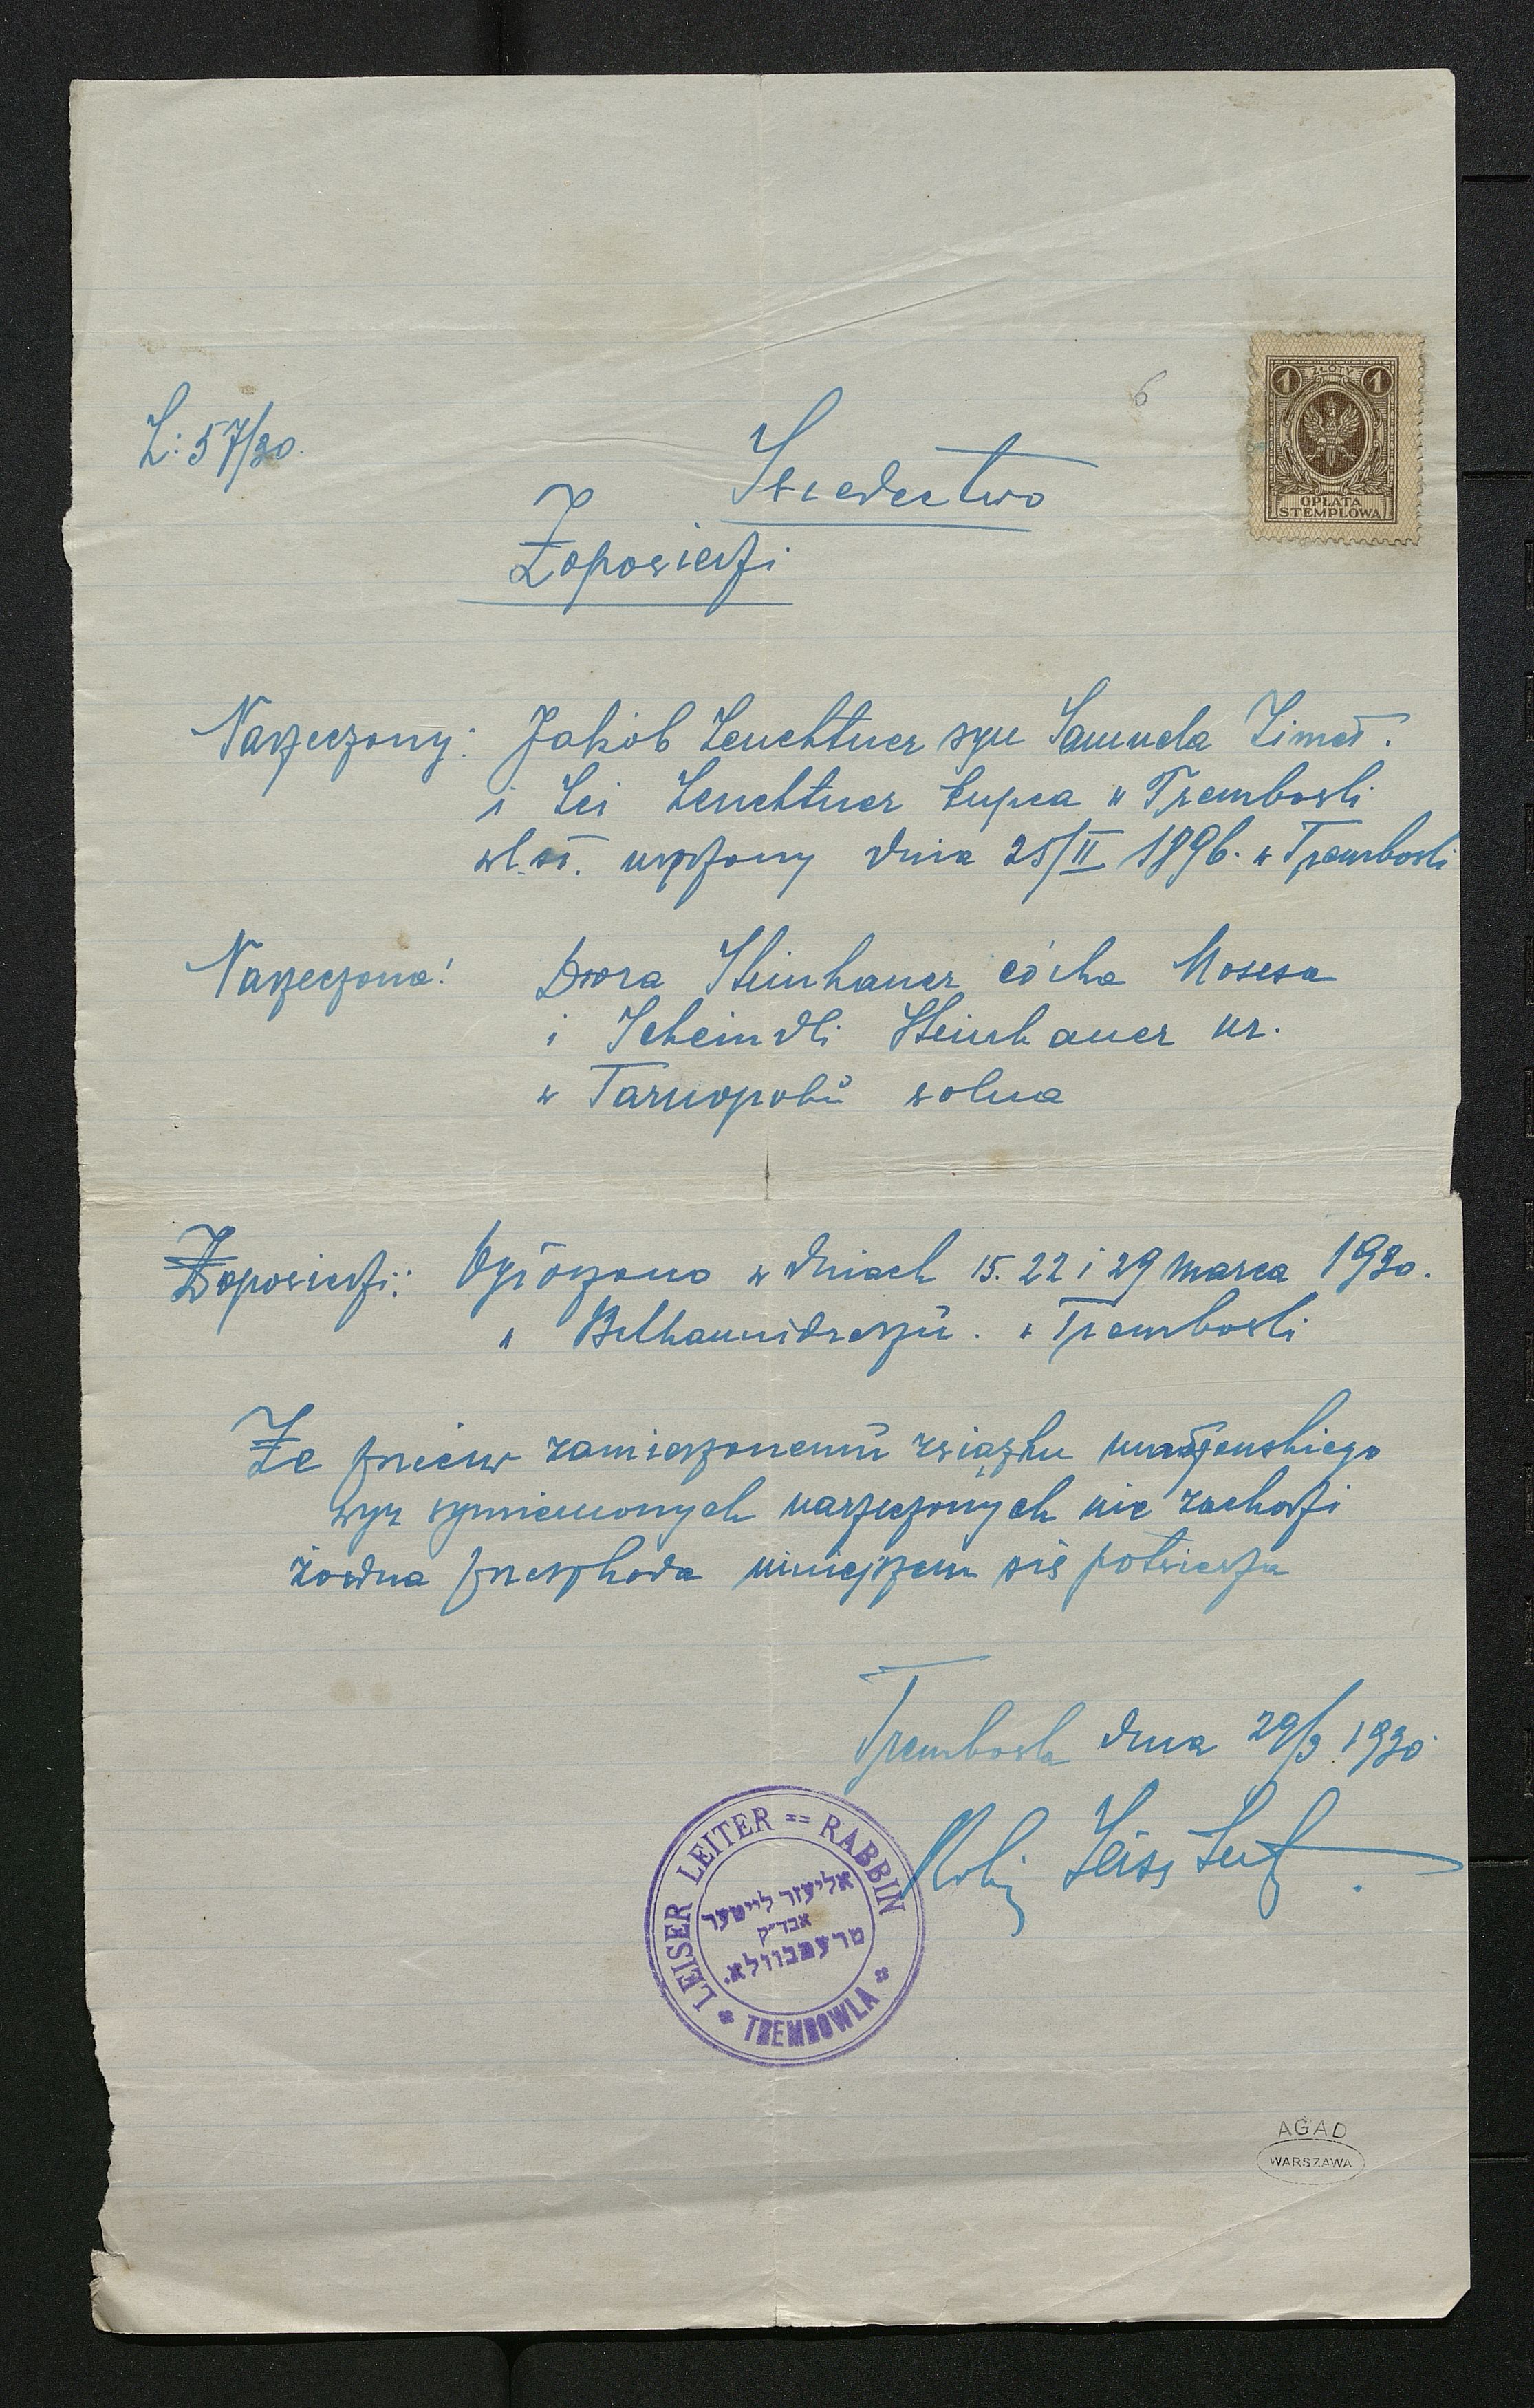 L: 57/30.
6
1 ZŁOTY 1
OPŁATA
STEMPLOWA
Swiadectwo
Zapowiedzi
Narzeczony: Jakób Leuchtner syn Samuela
i Lei Leuchtner kupca w Trembowli
urodzony dnia 25/II 1896. w Trembowli
Narzeczona: Dwora Steinhauer córka Mosesa
i Scheindli Steinhauer ur.
w Tarnopolu wolna
Zapowiedzi: Ogłoszono w dniach 15. 22 i 29 marca 1930.
w Bethamidraszu. w Trembowli
Że przeciw zamierzonemu związku małżenskiego
wyż wymienionych narzeczonych nie zachodzi
żadna przeszkoda niniejszem się potwierdza
Trembowla dnia 29/3 1930
LEISER LEITER == RABBIN
אליעזר לייטער
אבד״ק
טרעמבוולא.
* TREMBOWLA *
AGAD
WARSZAWA